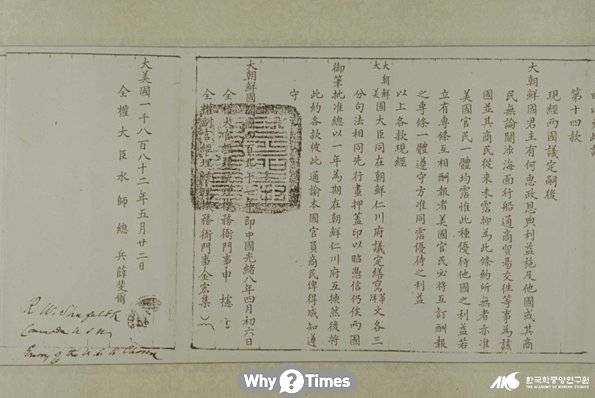 第十四款
現經兩國議定嗣後
大朝鮮國君主有何惠政恩典利益施及他國或其商
民無論關涉海面行船通商貿易交往等事為該
國並其商民從來未霑抑為此條約所無者亦准
美國官民一體均霑惟此種優待他國之利益若
立有專條互相酬報者美國官民必將互訂酬報
之專條一體遵守方准同霑優待之利益
以上各款現經
大朝鮮
大美國大臣同在朝鮮仁川府議定繕寫華洋文各三
分句法相同先行畫押蓋印以昭憑信仍俟兩國
御筆批准總以一年為期在朝鮮仁川府互換然後將
此約各款彼此通諭本國官員商民俾得咸知遵
守
大朝鮮國年即中國光緒八年四月初六日
全權大官經理機務衙門事申櫶
全權副官經理機務衙門事金宏集
大美國一千八百八十二年五月廿二日
全權大臣水師總兵薛斐爾
R. W. Shufeldt
Commodore U.S.N.
Envoy of the U.S. to Chosen
Why?Times
한국학중앙연구원
THE ACADEMY OF KOREAN STUDIES